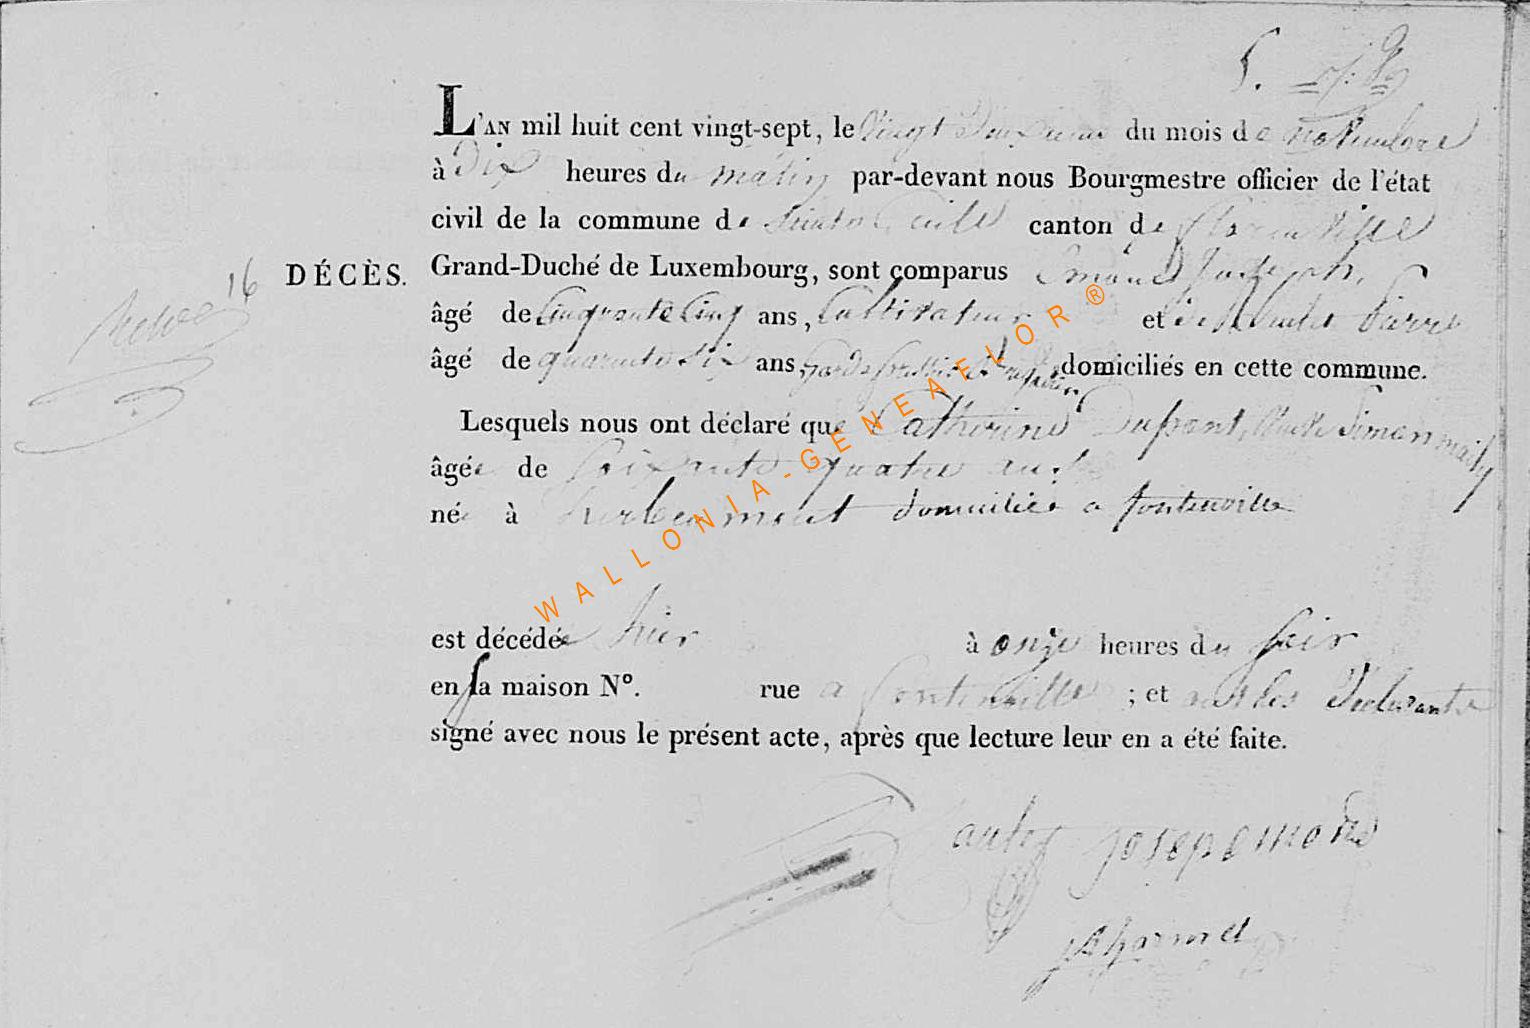 5.
L'AN mil huit cent vingt-sept, le Vingt Deuxieme du mois de novembre
à Dix heures du matin par-devant nous Bourgmestre officier de l'état
civil de la commune de Sainte Cecile canton de florenville
16 DÉCÈS. Grand-Duché de Luxembourg, sont comparus Emond Joseph,
âgé de Cinquante Cinq ans, Cultivateur et Pierre
âgé de quarante Six ans, domiciliés en cette commune.
Lesquels nous ont déclaré que Catherine Dupont, Simon
âgée de Soixante quatre ans
née à herbeumont domiciliée a fontenoille
est décédée hier à onze heures du soir
en sa maison N°. rue a fontenoille ; et ont les Declarants
signé avec nous le présent acte, après que lecture leur en a été faite.
josep emond
WALLONIA-GENEAFLOR®